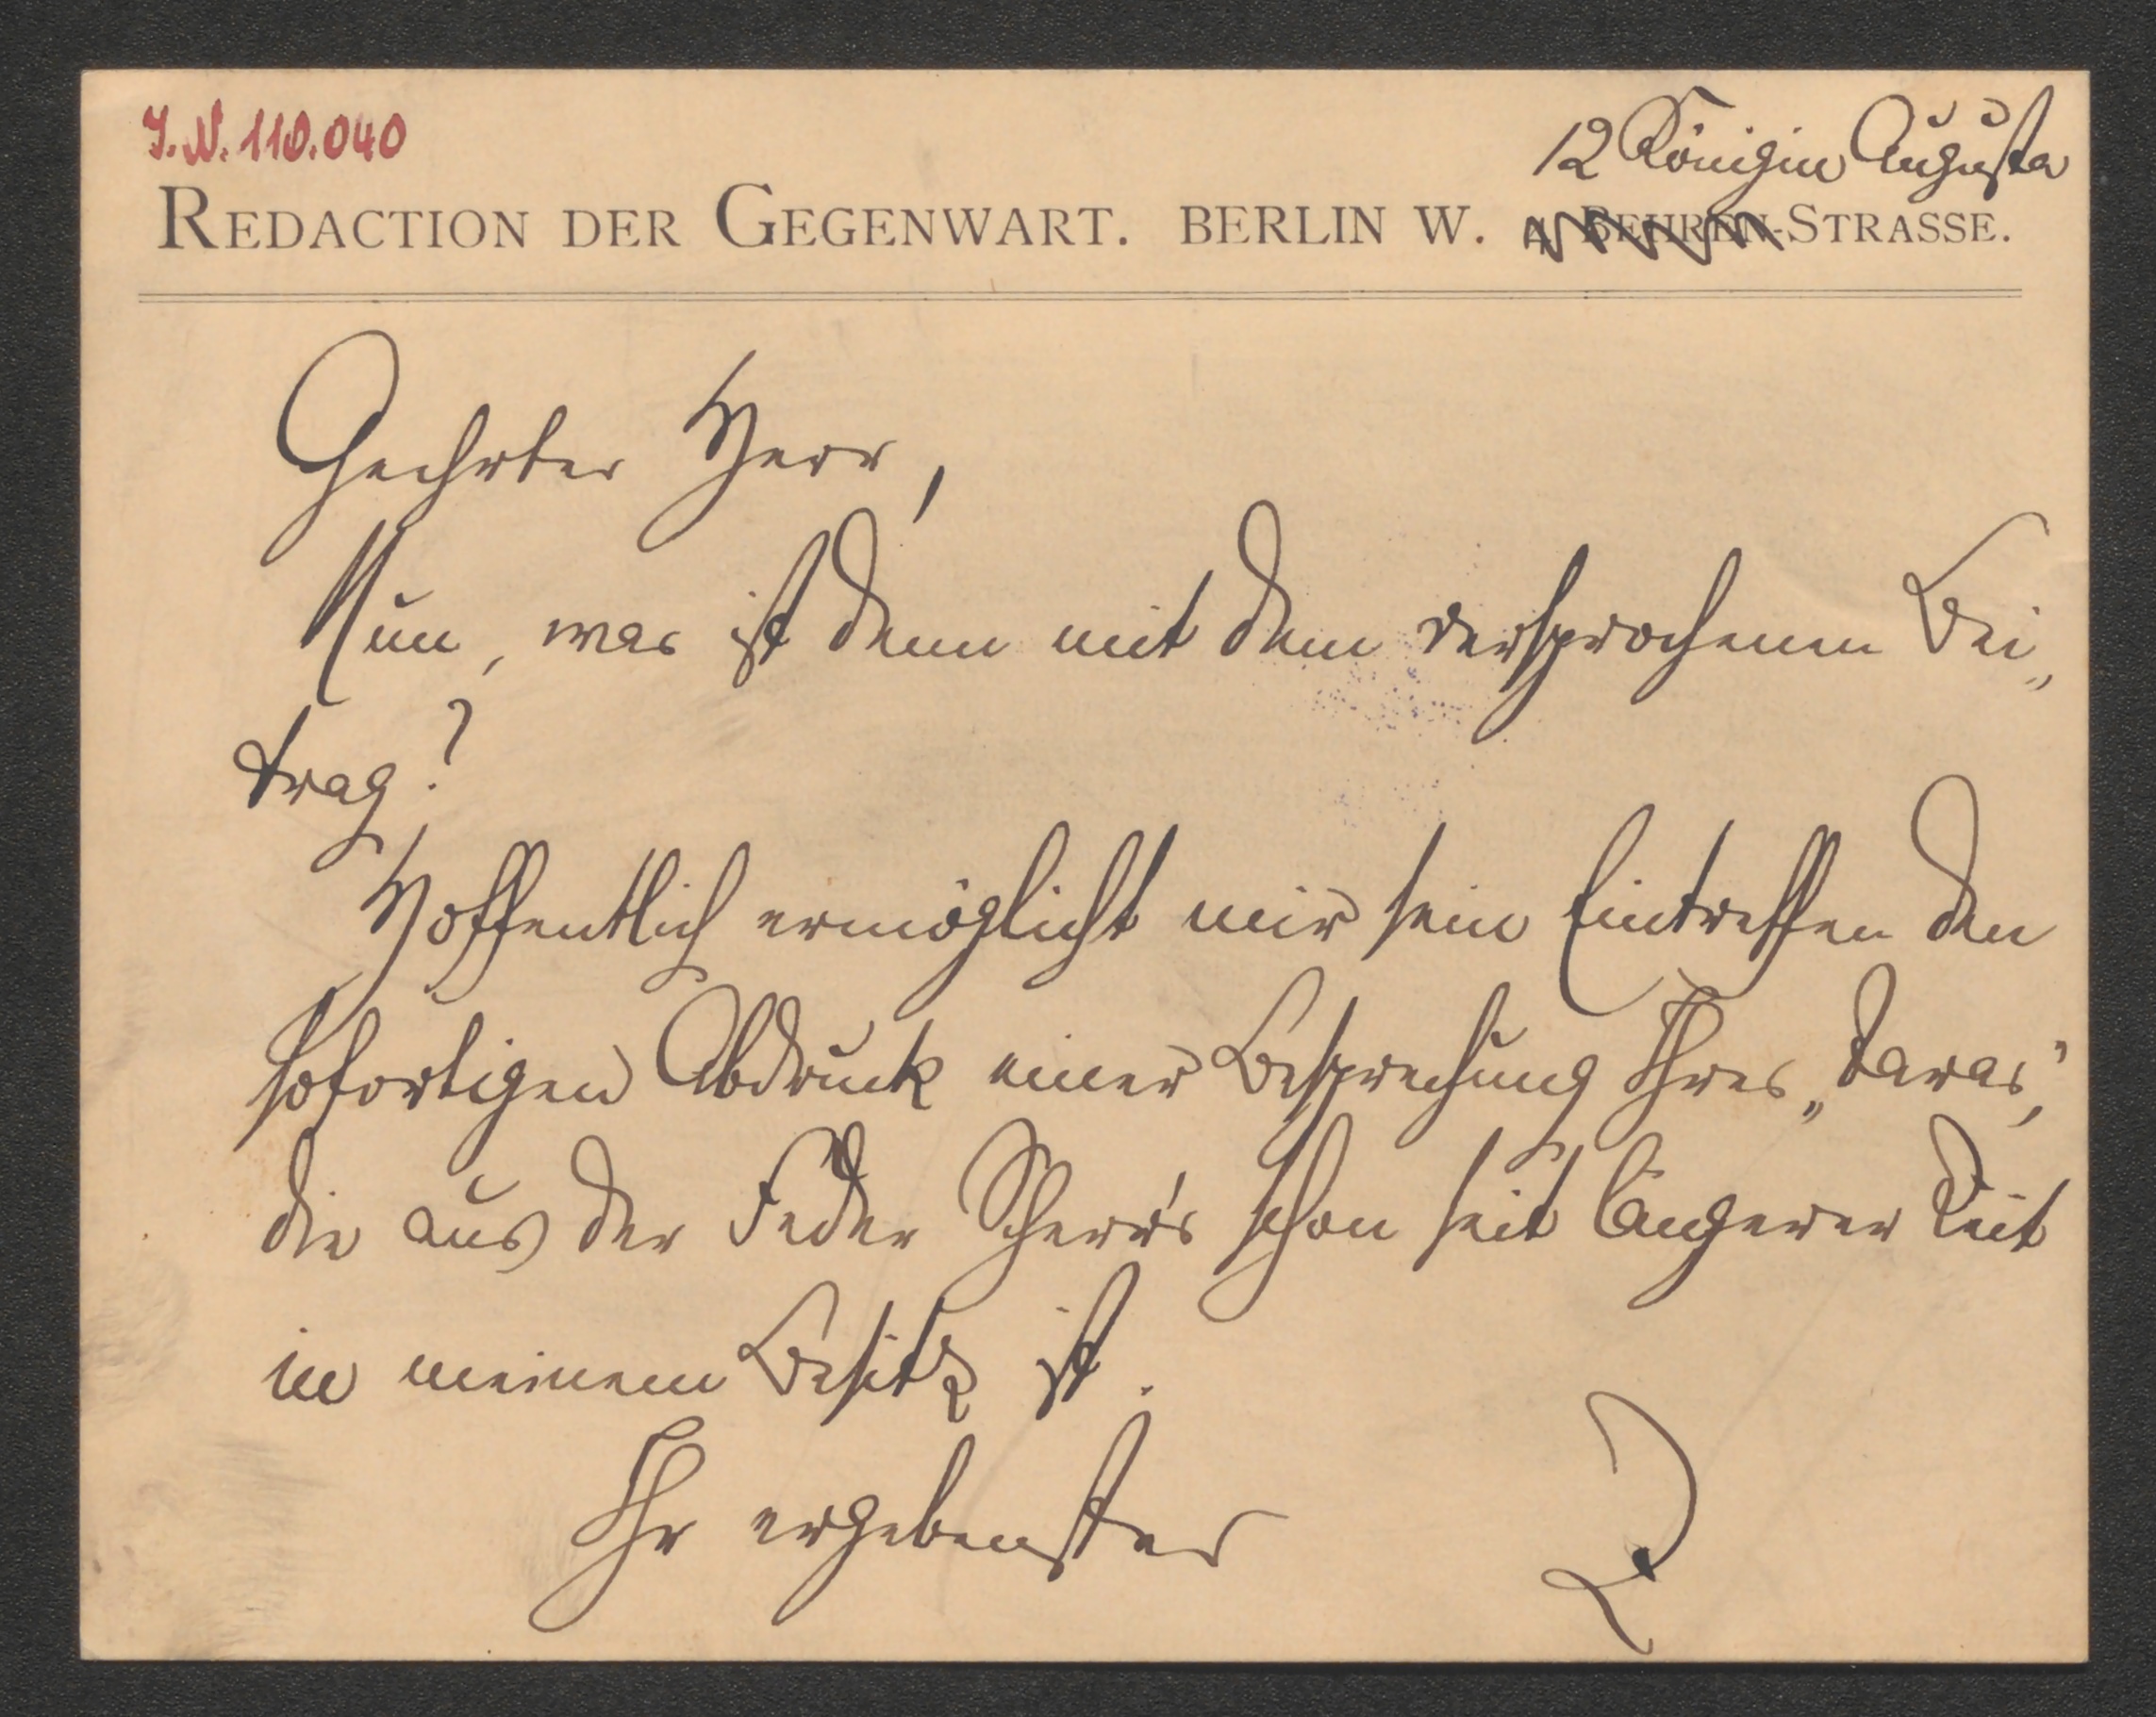 J.N. 110.040
12 Königin Augusta
REDACTION DER GEGENWART. BERLIN W. 4 BEHREN-STRASSE.
Geehrter Herr,
Nun, was ist denn mit dem versprochenen Bei„
trag?
Hoffentlich ermöglicht mir sein Eintreffen den
sofortigen Abdruck einer Besprechung Ihres „Taras“,
die aus der Feder Scherr's schon seit längerer Zeit
in meinem Besitz ist.
Ihr ergebenster